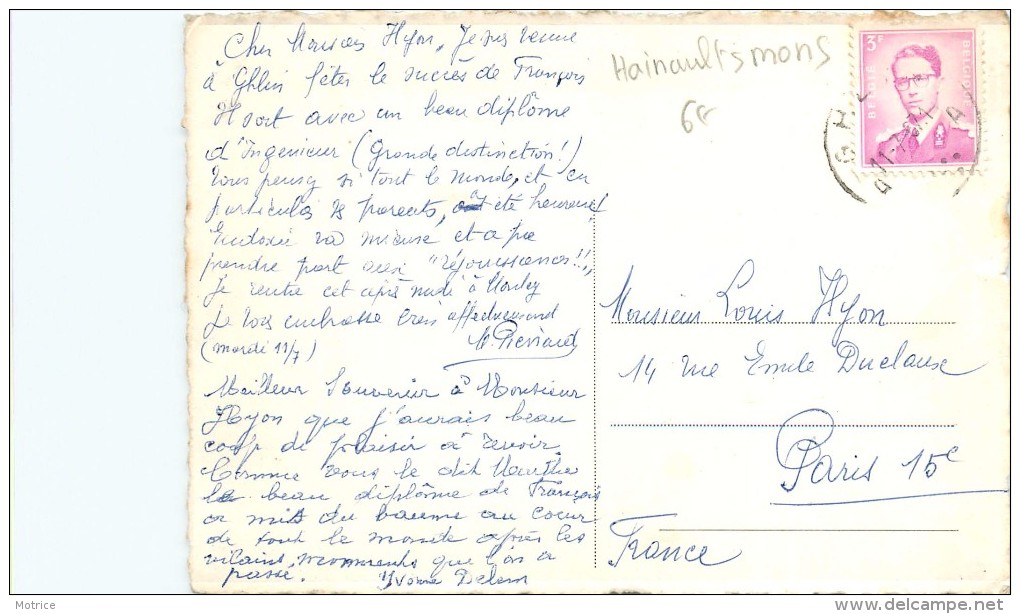 Cher Monsieur Hyon, Je suis venue
à Ghlin fêter le succès de François
Il sort avec un beau diplôme
d'Ingénieur (Grande distinction!)
Vous pensez si tout le monde, et en
particulier les parents, a été heureux!
va mieux et a pu
prendre part aux "réjouissances!!"
Je rentre cet après midi à
Je vous embrasse bien affectueusement
(mardi 11/7)
Meilleur Souvenir à Monsieur
Hyon que j'aurais beau
coup de plaisir à revoir.
Comme vous le dit Marthe
le beau diplôme de François
a mis du baume au coeur
de tout le monde après les
vilains moments que l'on a
passé. Yvonne
Hainault Mons
68
3F
BELGIE BELGIQUE
Monsieur Louis Hyon
14 rue Emile Duclaux
Paris 15e
France
Motrice
http://www.delcampe.net